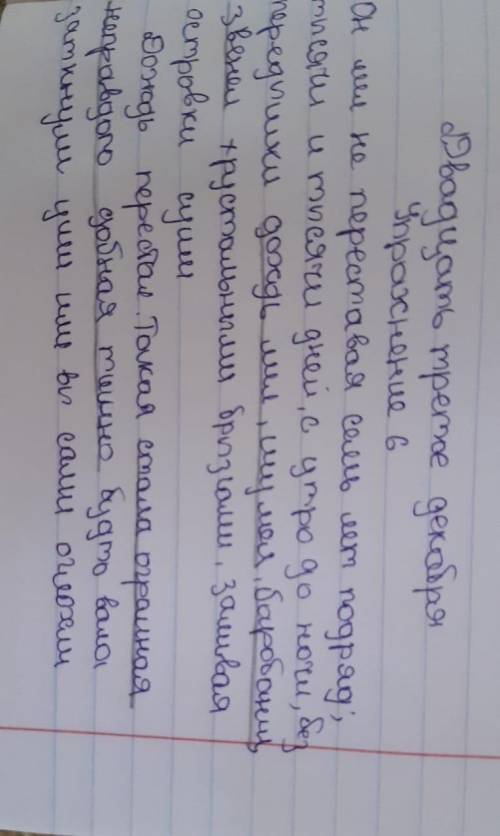 Двадцать третье декабря
Упражнение 6
Он лил не переставая семь лет подряд;
тысячи и тысячи дней, с утро до ночи, без
передышки дождь лил, шумел, барабанил,
звенел хрустальными брызгами, заливая
островки суши
Дождь перестал. Такая стала огромная
неправдо добная тишино будто вала
заткнули уши или вы сами оглохли